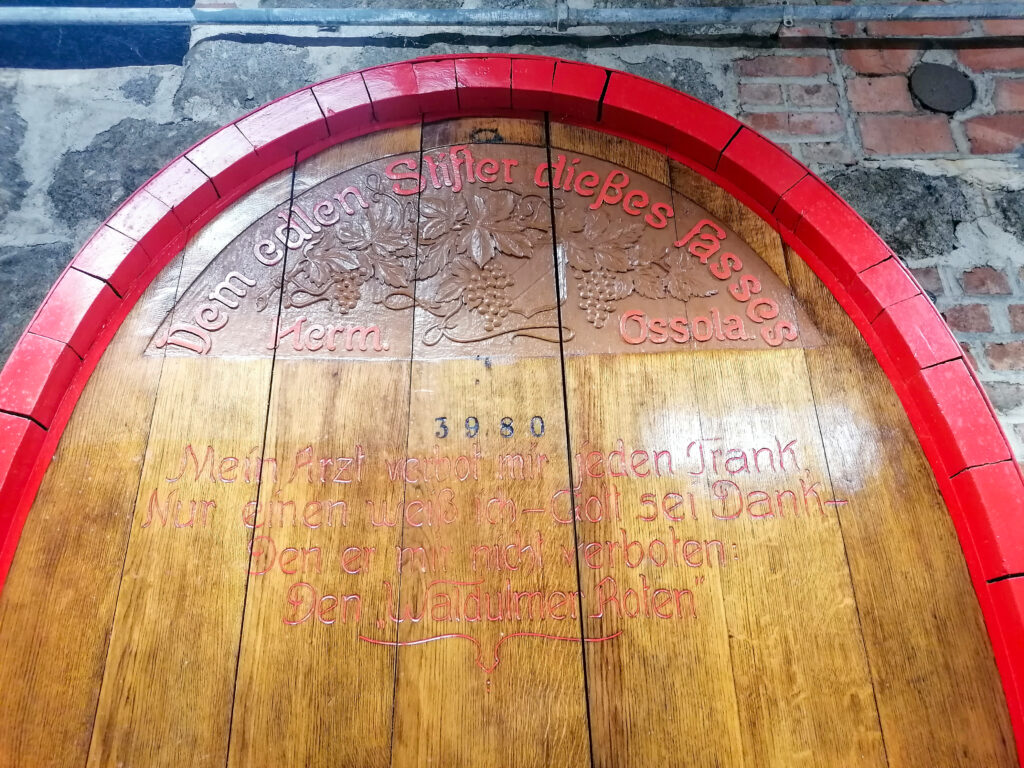 Dem edlen Stifter dießes Fasses
Herm. Ossola.
3980
Mein Arzt verbot mir jeden Trank,
Nur einen weiß ich – Gott sei Dank –
Den er mir nicht verboten:
Den „Waldulmer Roten"